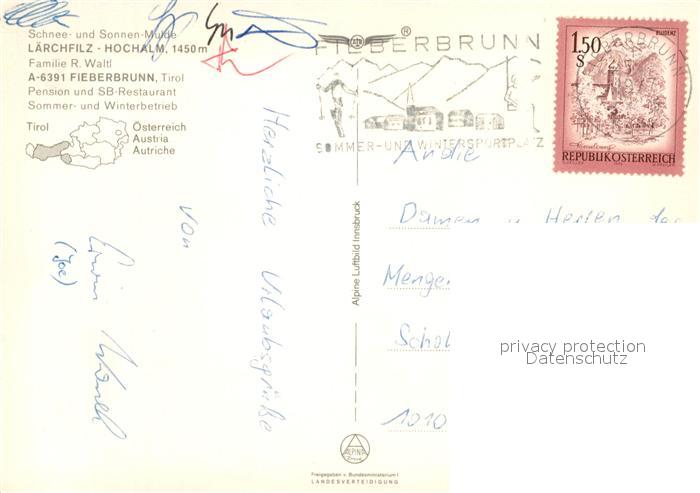 Schnee- und Sonnen-Mulde
LÄRCHFILZ - HOCHALM, 1450m
Familie R. Waltl
A-6391 FIEBERBRUNN, Tirol
Pension und SB-Restaurant
Sommer- und Winterbetrieb
Tirol
Österreich
Austria
Autriche
Herzliche Urlaubsgrüße
von
Erwin
(Joe)
Alpine Luftbild Innsbruck
ALPINA
Freigegeben v. Bundesministerium f.
LANDESVERTEIDIGUNG
®
FIEBERBRUNN
SOMMER- UND WINTERSPORTPLATZ
BLUDENZ
1.50
S
REPUBLIK ÖSTERREICH
FIEBERBRUNN
An die
Damen u Herren der
Menger
1010
privacy protection
Datenschutz